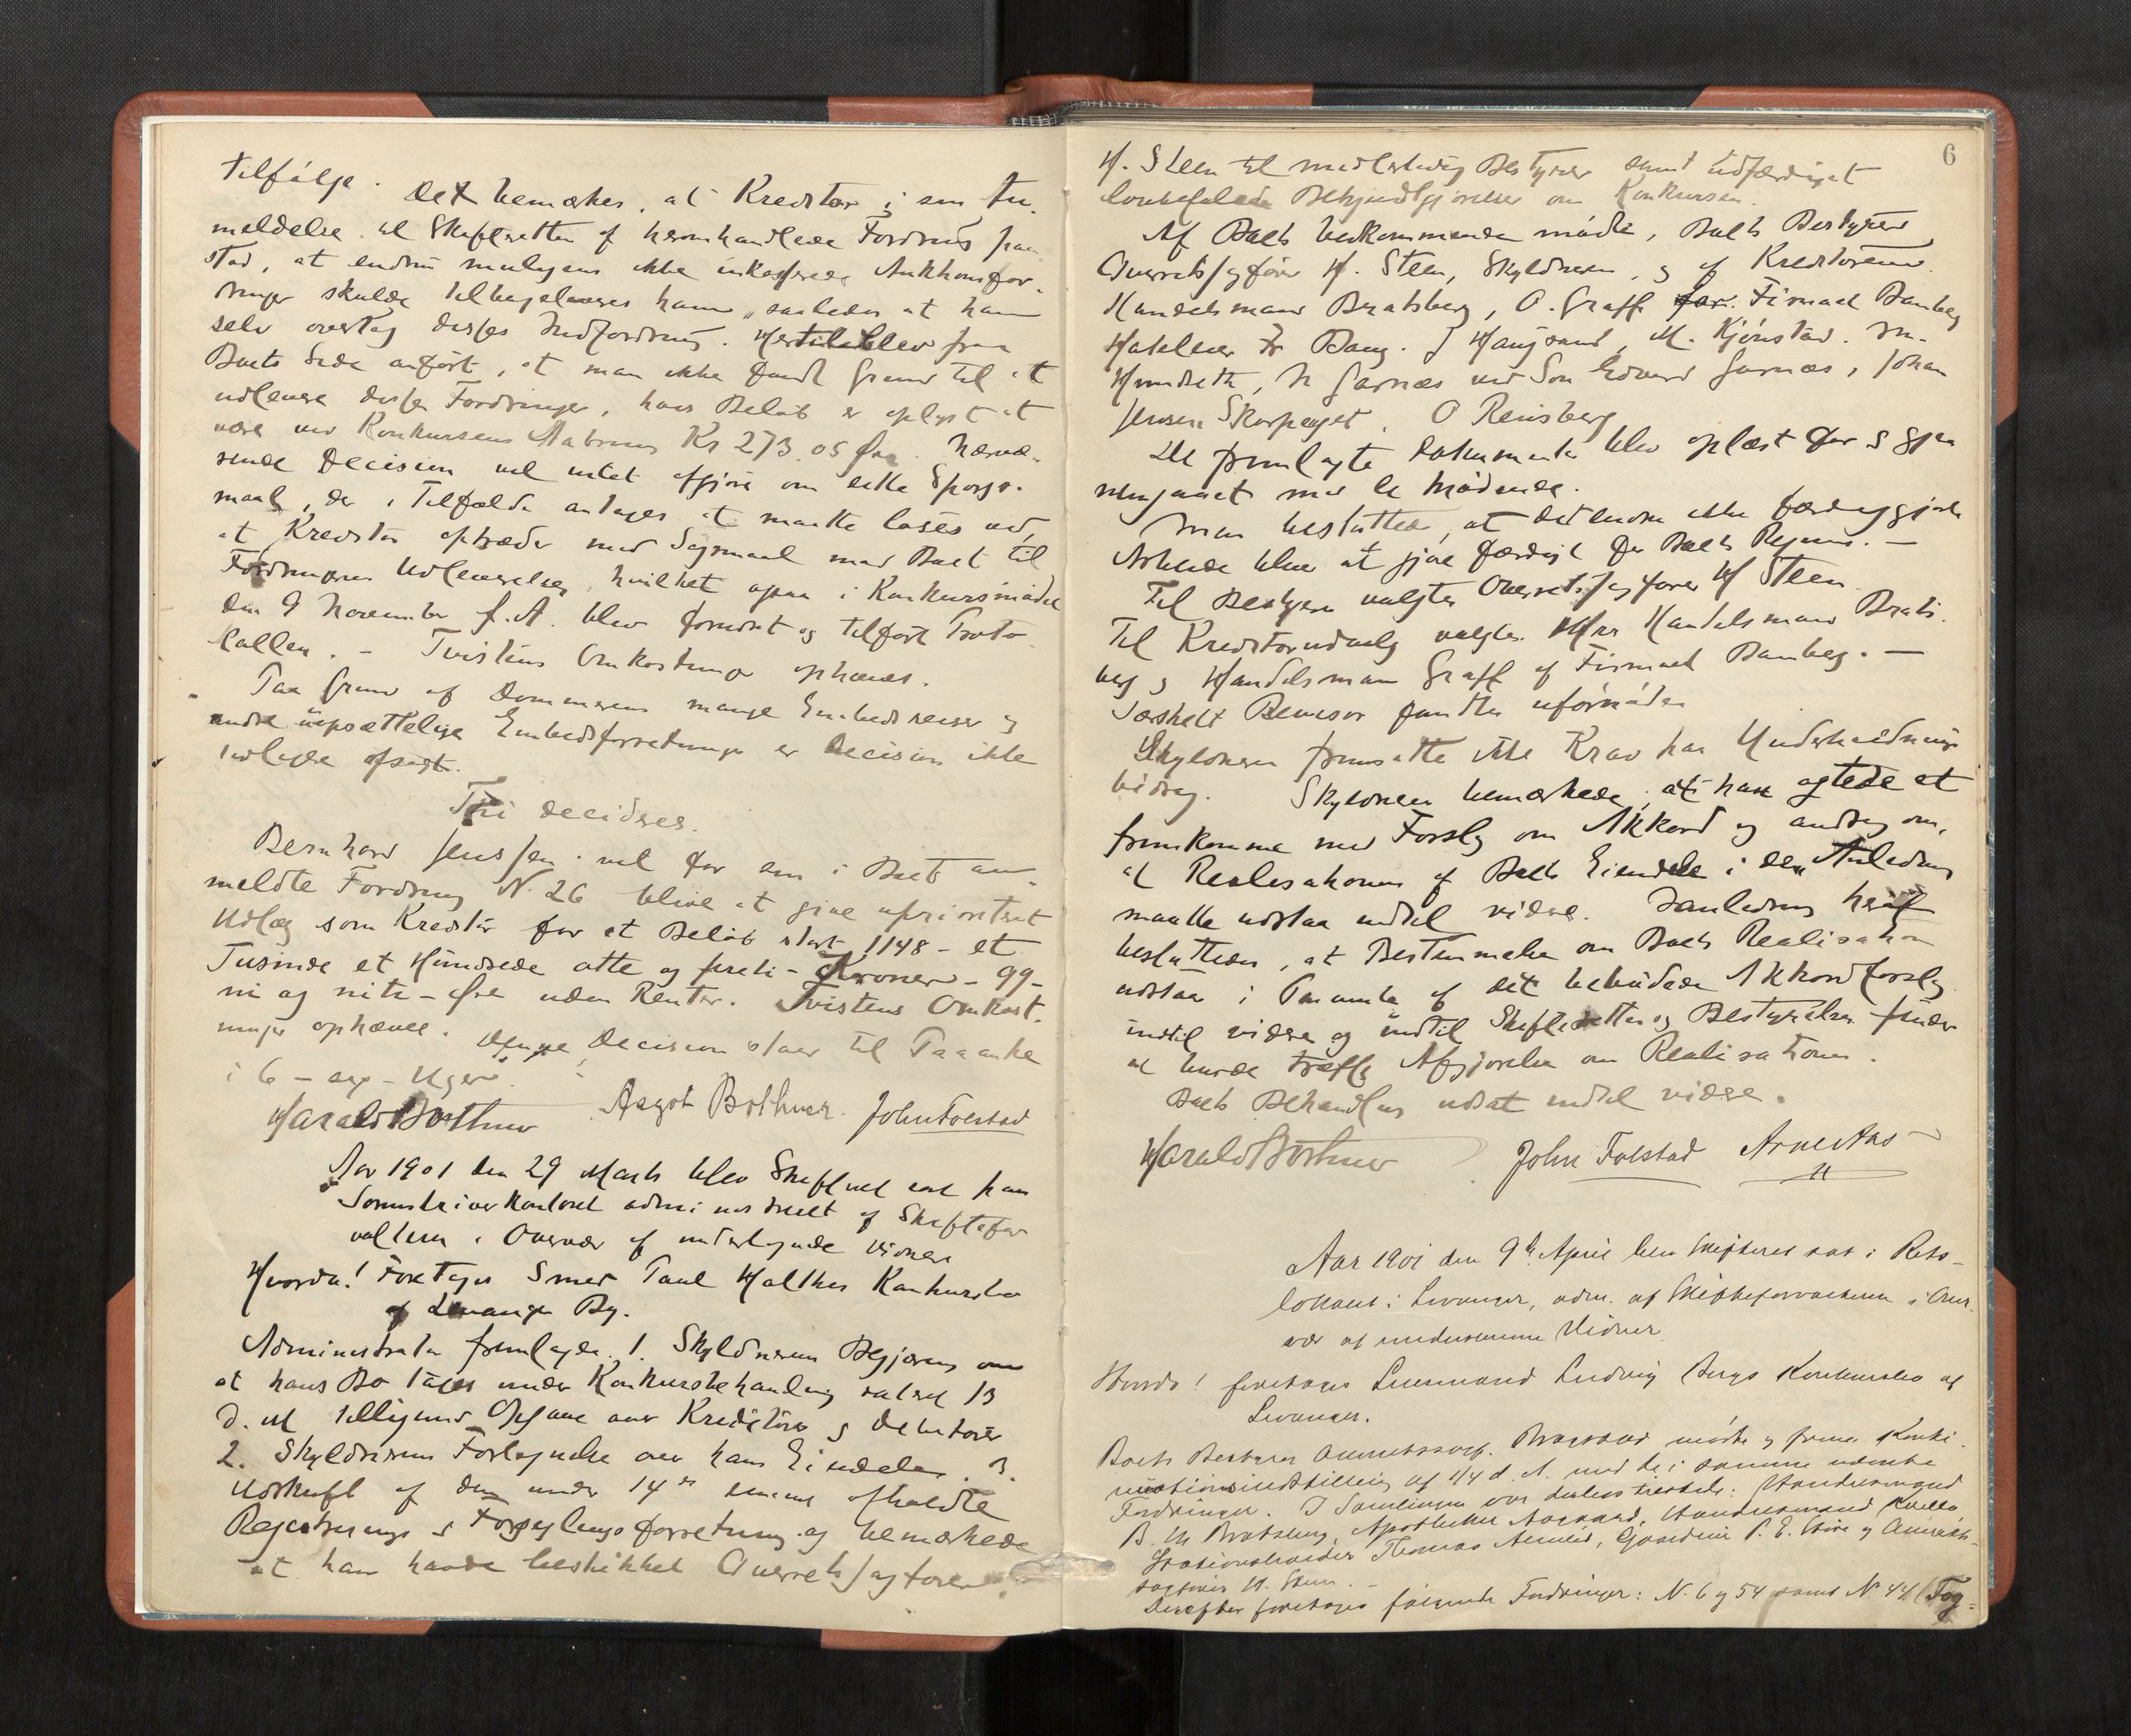 tilfølge. Det bemærkes, at Kreditor i sin An-
meldelse til Skifteretten af heromhandlede Fordring paa-
stod, at endnu muligens ikke inkasserede Auktionsfor-
dringer skulde tilbageleveres ham, saaledes at han
selv overtog disses Indfordring. Hertil blev fra
Boets Side anført, at man ikke fandt Grund til at
udlevere disse Fordringer, hvis Beløb er oplyst at
være ved Konkursens Aabning Kr 273.05 Øre. Nærvæ-
rende Decision vil intet afgjøre om dette Spørgs-
maal, der i Tilfælde antages at maatte løses ved,
at Kreditor optræder med Søgsmaal mod Boet til
Fordringens Udleverelse, hvilket ogsaa i Konkursmødet
den 9 November f.A. blev forment og tilført Proto-
kollen. - Tvistens Omkostninger ophæves.
Paa Grund af Dommerens mange Embedsreiser og
andre uopsættelige Embedsforretninger er Decision ikke
tidligere afsagt.
Thi decideres.
Bernhard Jenssen vil for sin i Boet an-
meldte Fordring N. 26 blive at give uprioritert
Udlæg som Kreditor for et Beløb stort 1148 - et
Tusinde et Hundrede otte og førti - Kroner - 99 -
ni og nitti - Øre uden Renter. Tvistens Omkost-
ninger ophæves. Denne Decision staar til Paaanke
i 6 - sex - Uger.
Harald Bothner Aagot Bothner. John Folstad
Aar 1901 den 29 Marts blev Skifteret sat paa
Sorenskriverkontoret administreret af Skiftefor-
valteren i Overvær af undertegnede Vidner
Hvorda! Foretages Smed Paul Holthes Konkursbo
af Levanger By.
Administrator fremlagde. 1. Skyldnerens Begjæring om
at hans Bo tages under Konkursbehandling dateret 13
d. M tilligemed Opgave over Kreditorer og Debitorer
2. Skyldnerens Fortegnelse over hans Eiendele. 3.
Udskrift af den under 14de samme afholdte
Registrerings og Forseglingsforretning og bemærkede
at han havde beskikket Overretssagfører
6
H. Steen til midlertidig Bestyrer samt udfærdiget
lovbefalede Bekjendtgjørelser om Konkursen.
Af Boets Vedkommende mødte, Boets Bestyrer
Overretssagfører H. Steen, Skyldneren, og af Kreditorerne
Handelsmand Bratsberg, O. Graff for Firmaet Bamberg
Hoteleier Fr Bang. J Haugsand, M. Kjønstad. M.
Hundseth, N Garnæs ved Søn Edvard Garnæs, Johan
Jensen Skarpeyet. O Reinsberg
De fremlagte Dokumenter blev oplæst for og gjen
nemgaaet med de Mødende.
Man besluttede, at det endnu ikke færdiggjorte
Arbeide blev at gjøre færdigt for Boets Regning. -
Til Bestyrer valgtes Overretssagfører H Steen
Til Kreditorudvalg valgtes Hrr Handelsmand Brats-
berg og Handelsmann Graff af Firmaet Bamberg. -
Særskilt Revisor fandtes ufornøden
Skyldneren fremsatte ikke Krav paa Underholdnings
bidrag. Skyldneren bemærkede, at han agtede at
fremkomme med Forslag om Akkord og androg om,
at Realisationen af Boets Eiendele i den Anledning
maatte udstaa indtil videre. I Anledning heraf
besluttedes, at Bestemmelse om Boets Realisation
udstaar i Paavente af det bebudede Akkordforslag
indtil videre og indtil Skifteretten og Bestyrelsen finder
at burde træffe Afgjørelse om Realisationen.
Boets Behandling udsat indtil videre.
Harald Bothner John Folstad Arne Aas
Aar 1901 den 9de April blev Skifteret sat i Rets-
lokalet i Levanger, adm. af Skifteforvalteren i Over-
vær af undertegnede Vidner.
Hvorda! foretoges Snemand Ludvig Bergs Konkursbo af
Levanger.
Boets Bestyrer Overretssagf. Bragstad mødte og fremla Konti-
nuationsindstilling af 1/4 d. A. med de i samme nævnte
Fordringer. I Samlingen var desuden tilstede: Handelsmand
B. M Bratsberg, Apotheker Aagaard, Handelsmand Kvello,
Stationsholder Thomas, Gaardeier P. E. og Overrets-
sagfører H. Steen. -
Derefter foretoges følgende Fordringer: N. 6 og 54 samt N 44 (Fog-